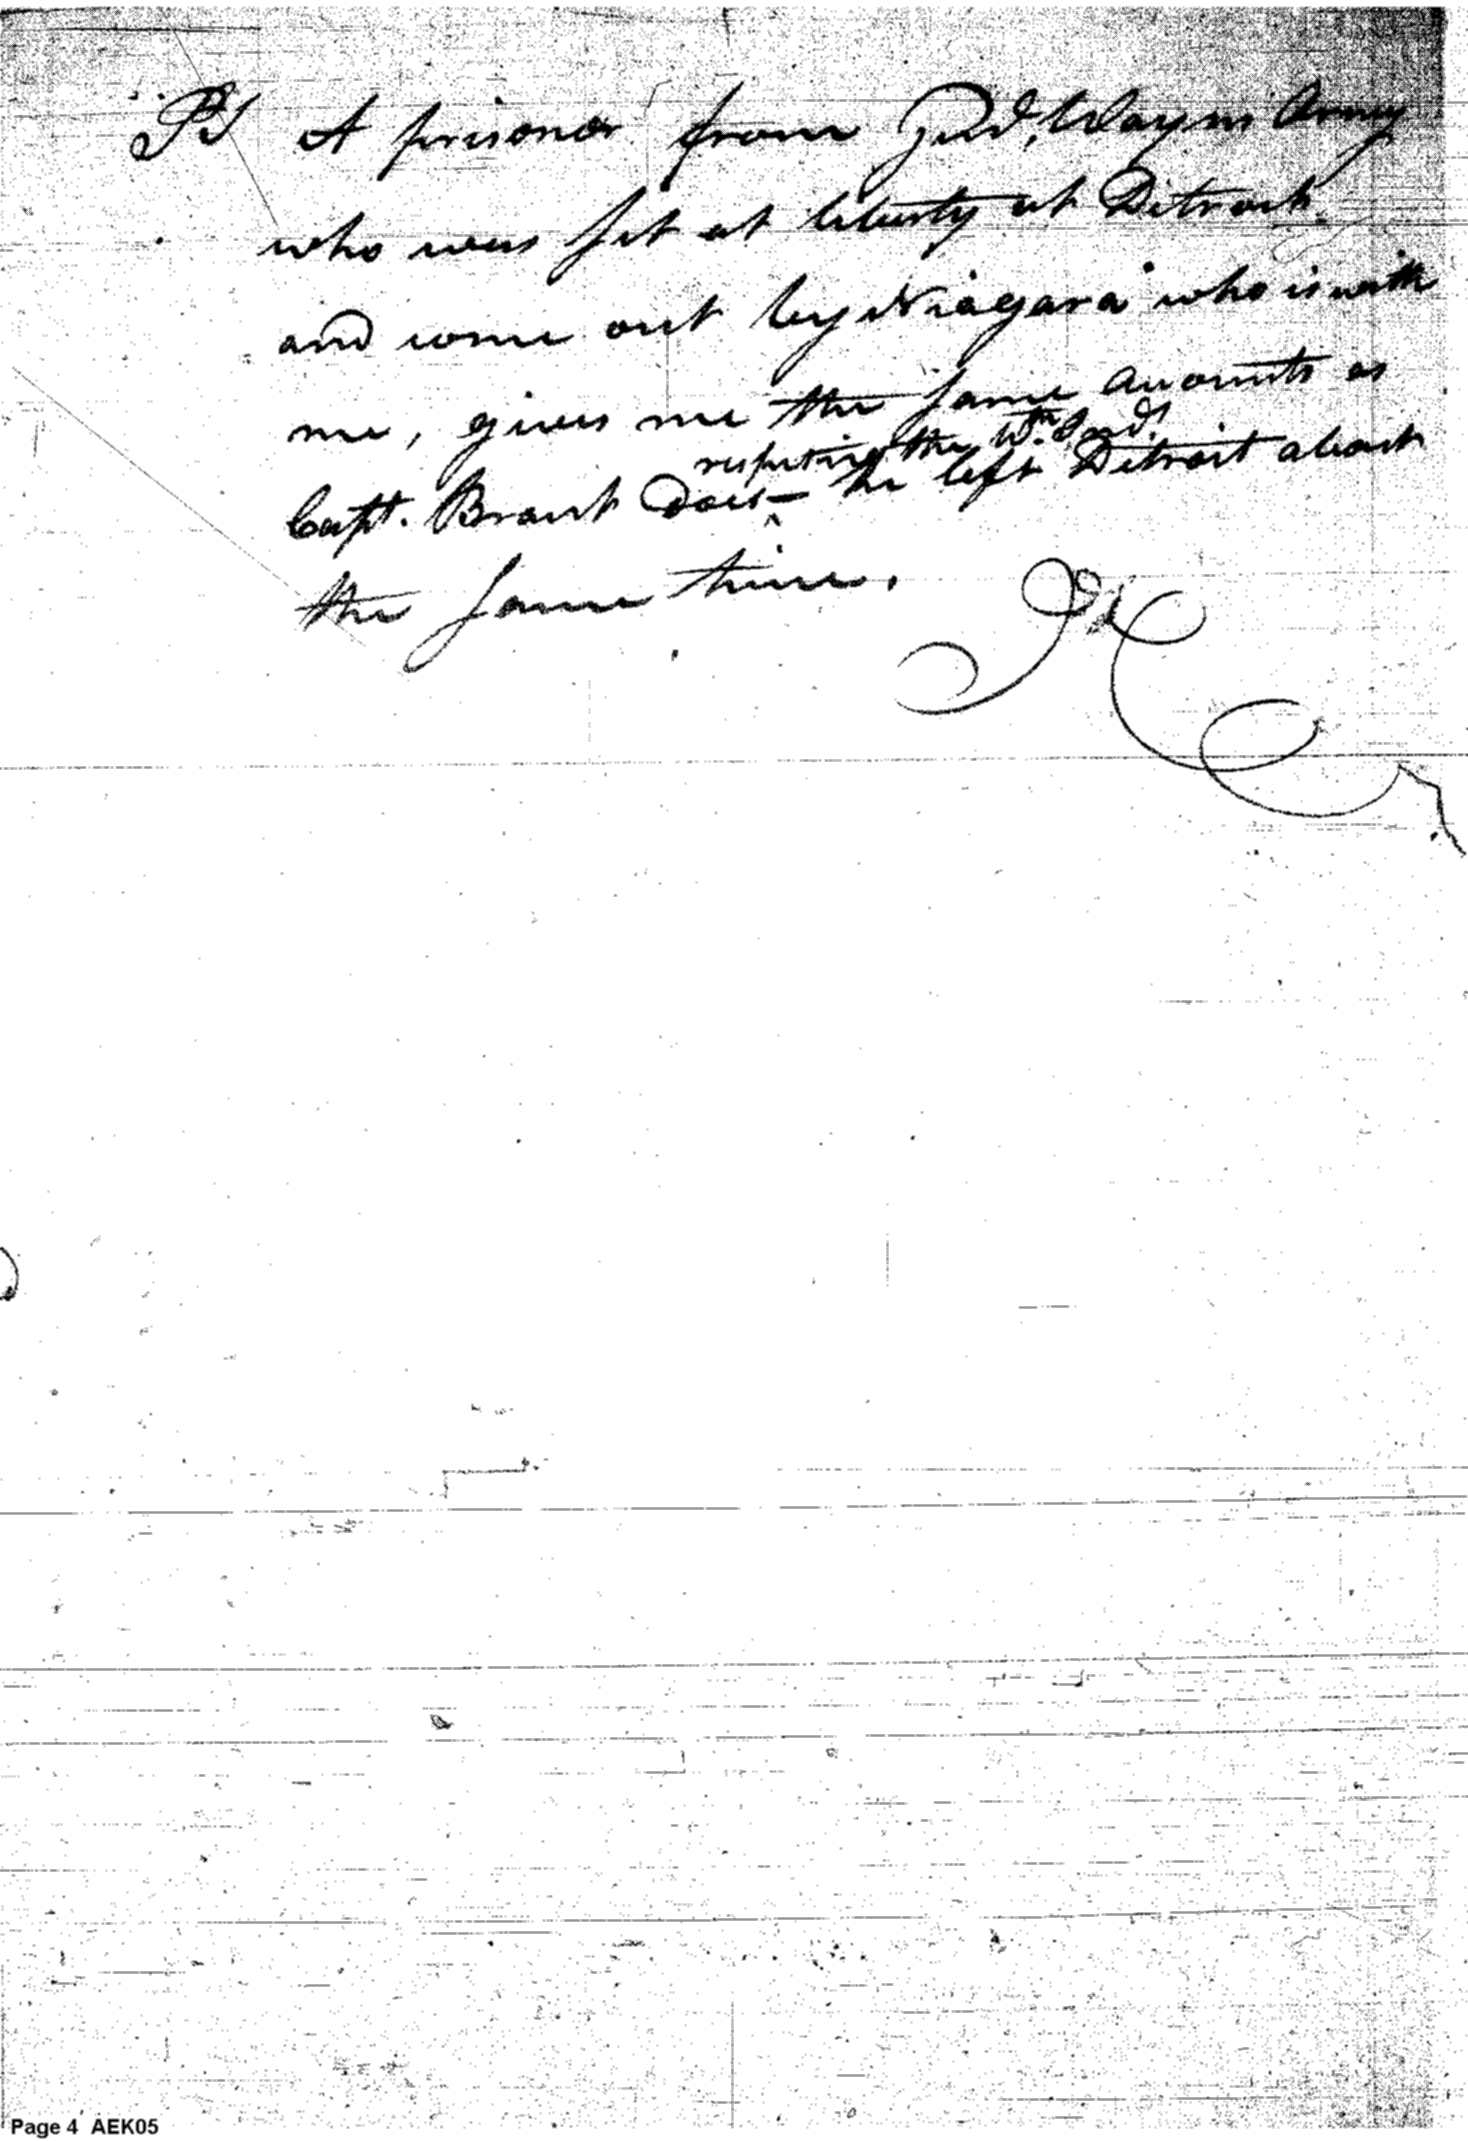 PS A prisoner from Genl. Wayns Army
who was set at liberty at Detroit
and come out by Niagara who is with
me, gives me the same accounts as
respecting the Wn. Inds.
Capt. Brant does — he left Detroit about
^
the same time.
Page 4 AEK05